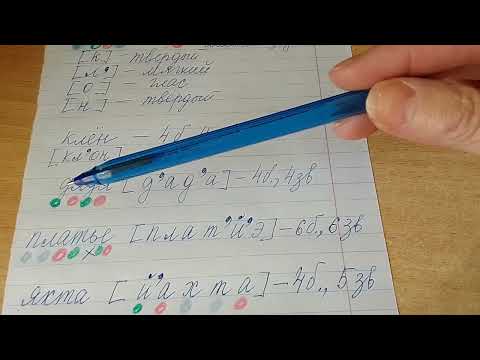 [к] — твердый
[л'] — мягкий
[о] — глас
[н] — твердый
клён — 4б
[кл'он]
дядя [д'ад'а] — 4б, 4зв
платье [плат'й'э] — 6б, 6зв
яхта [й'ахта] — 4б., 5зв